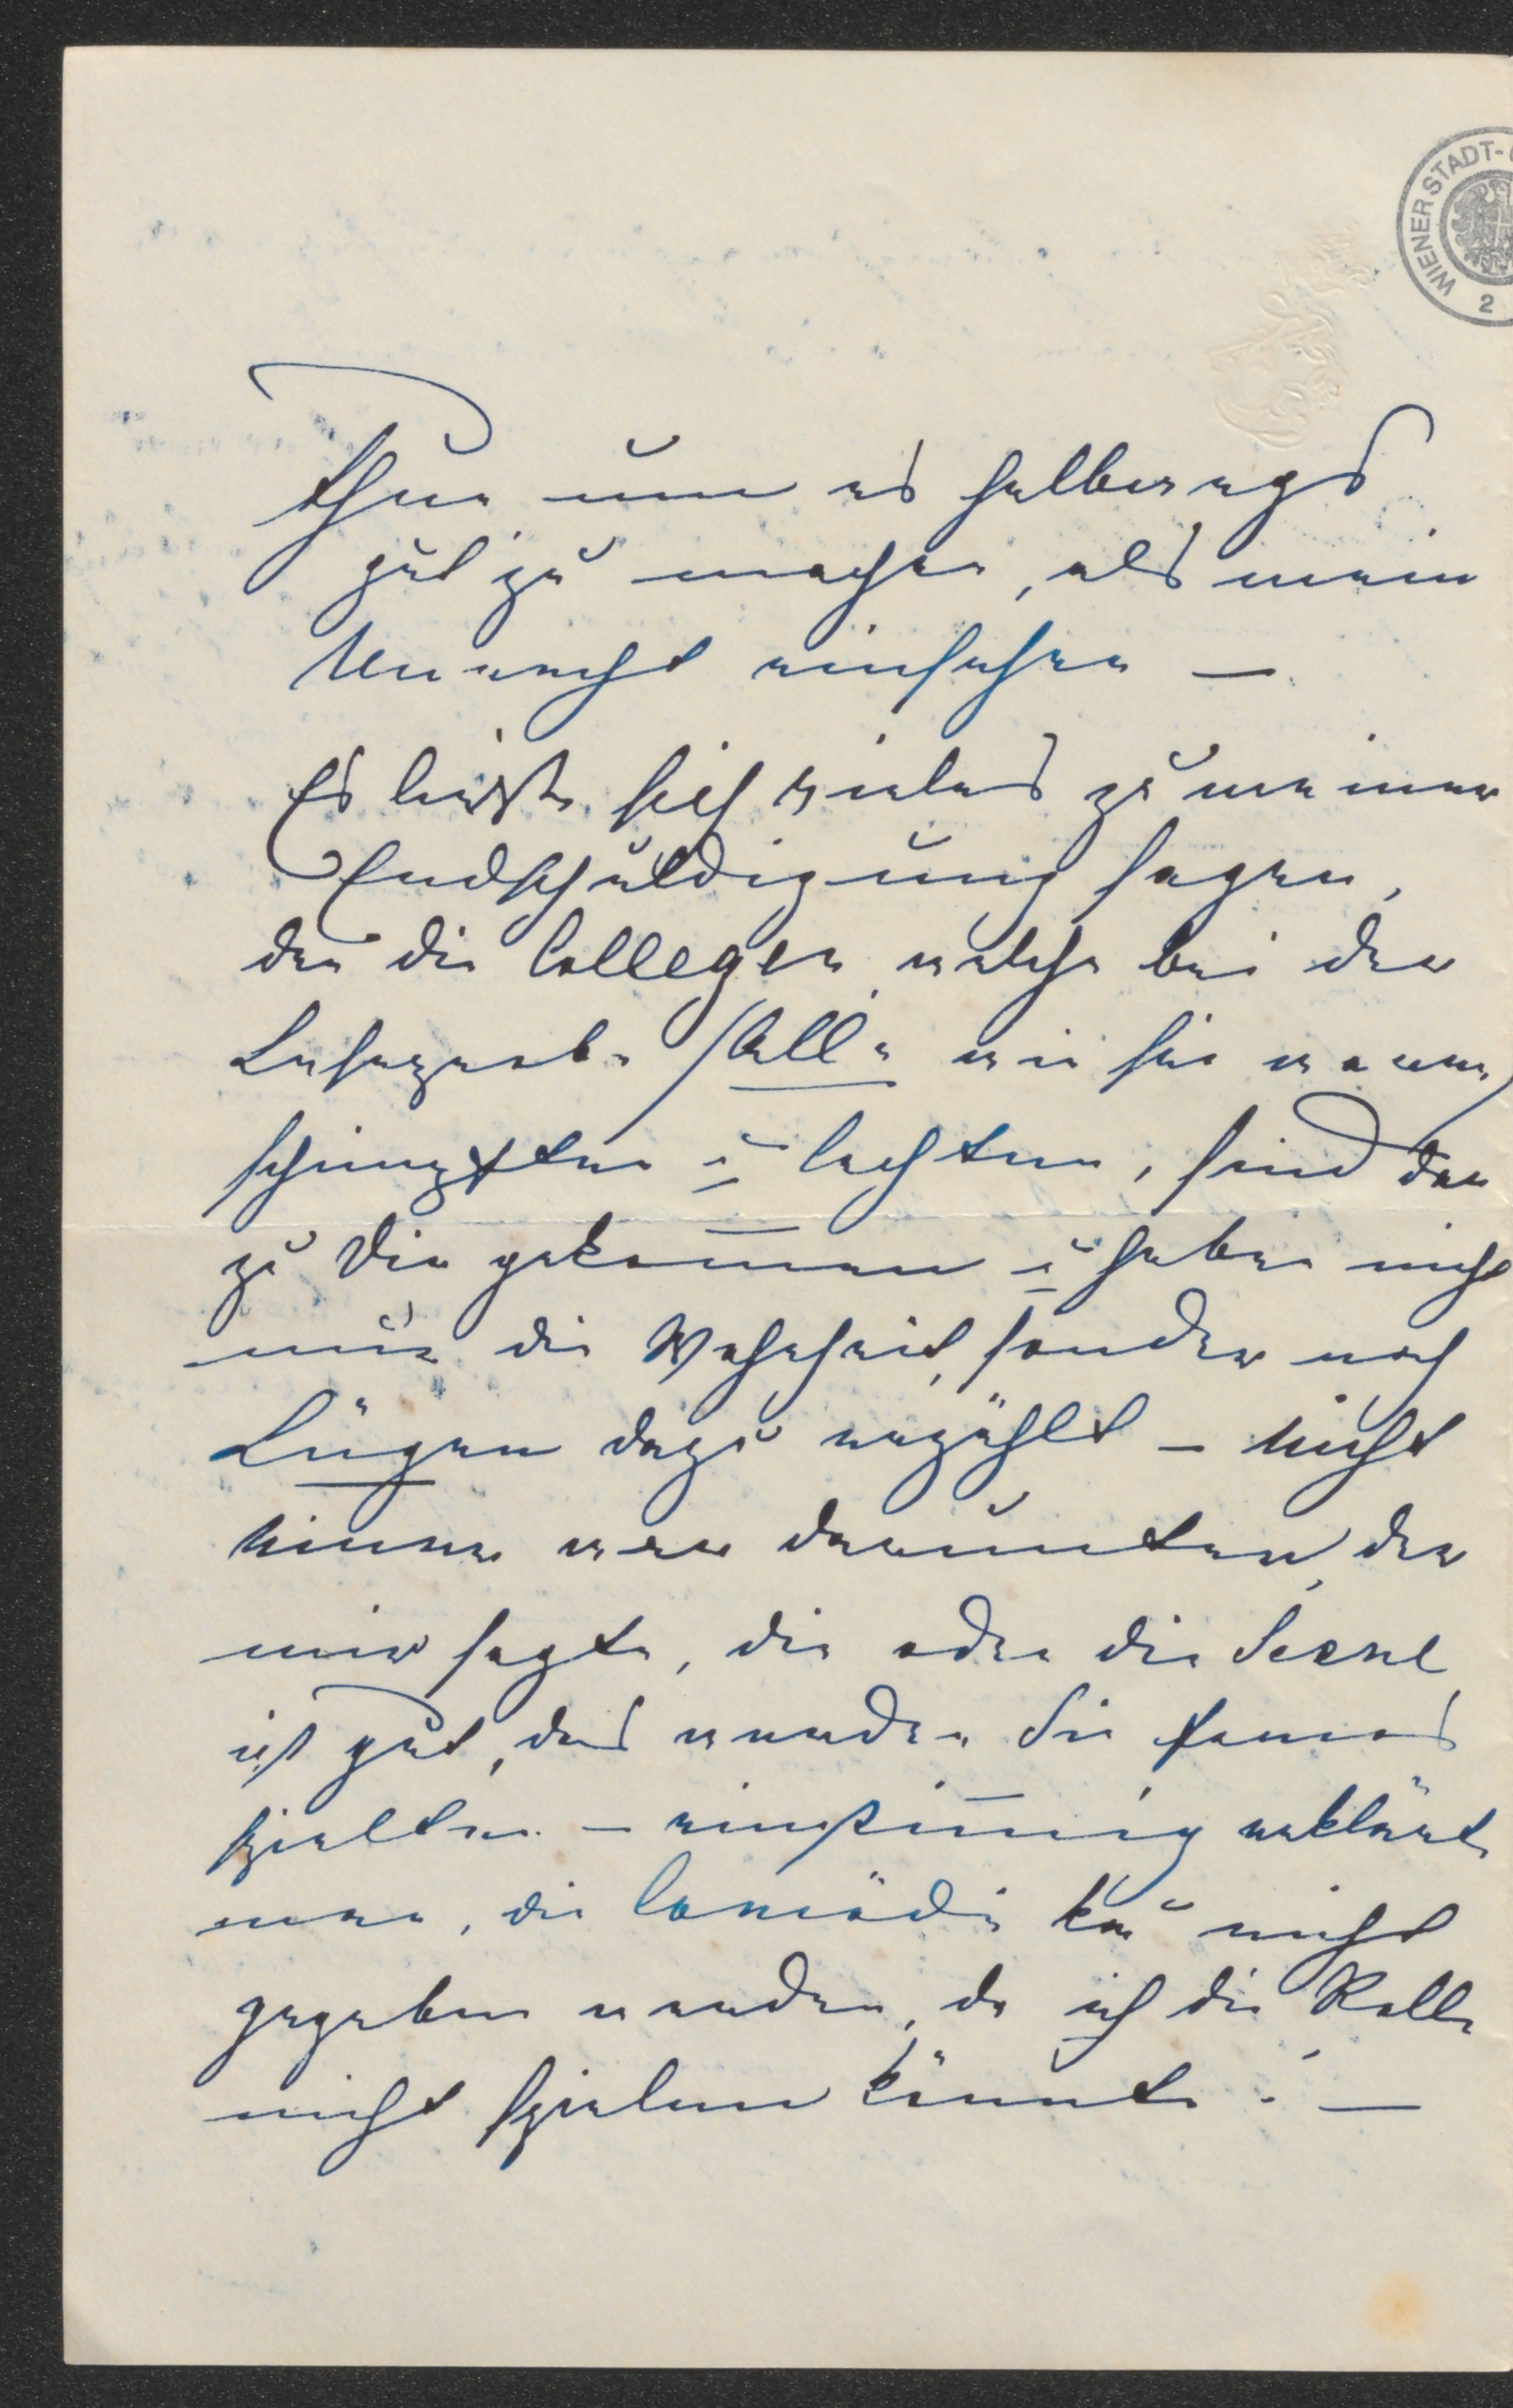 WIENER STADT-
2
thun um es halbwegs
gut zu machen, als mein
Unrecht einsehen —
Es liesse sich vieles zu meiner
Endschuldigung sagen,
den die Collegen, welche bei der
Leseprobe /Alle wie sie waren/
schimpften u lachten, sind dan
zu Dir gekom̄en u haben nicht
nur die Wahrheit, sonder noch
Lügen dazu erzählt – Nicht
Einer war darunter, der
mir sagte, die oder die Scene
ist gut, das werden Sie famos
spielen. – einstim̄ig erklärte
man, die Comödie kan̄ nicht
gegeben werden, da ich die Rolle
nicht spielen könnte. —